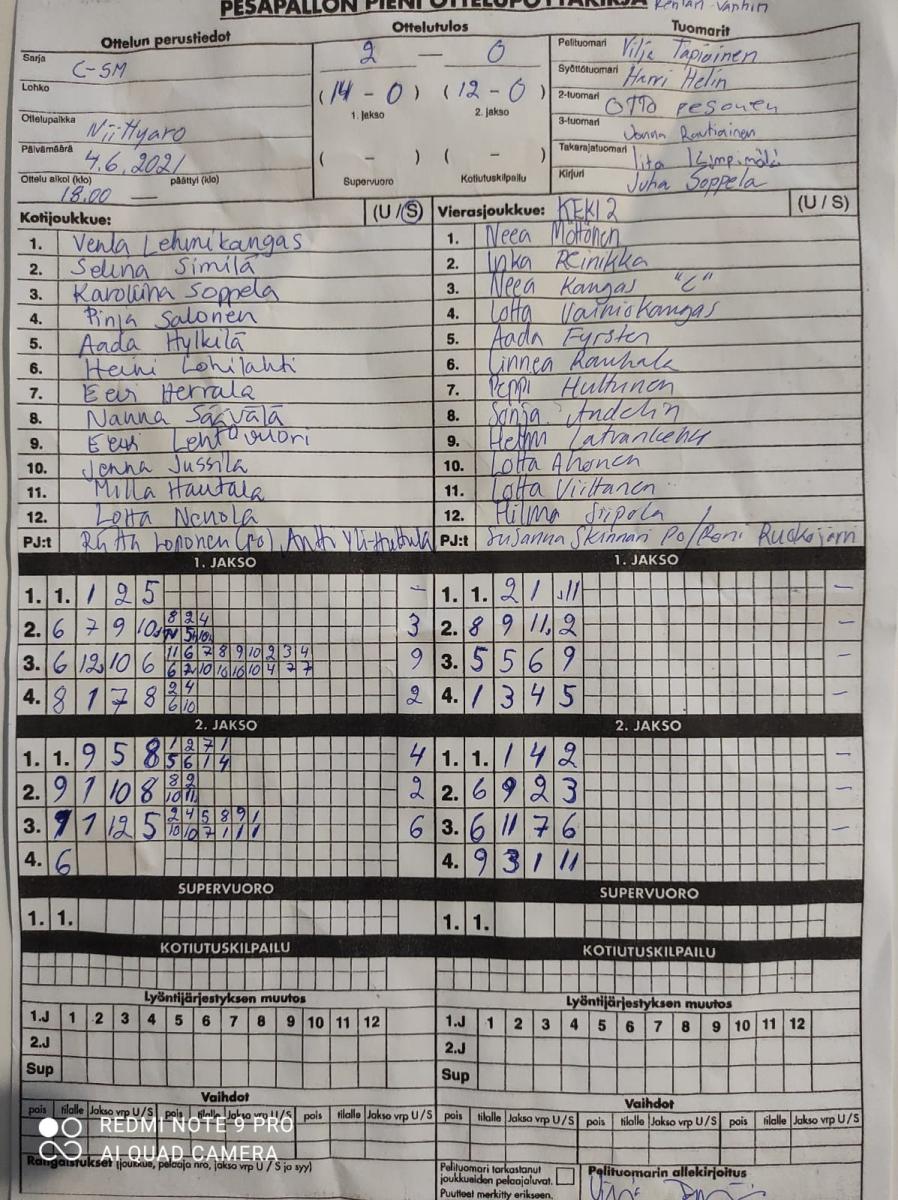 PESÄPALLON PIENI OTTELUPÖYTÄKIRJA Kentän vanhin
Ottelun perustiedot
Sarja C-SM
Lohko
Ottelupaikka Niittyaro
Päivämäärä 4.6.2021
Ottelu alkoi (klo) päättyi (klo)
18.00 —
Ottelutulos
2 - 0
(14 - 0) (12 - 0)
1. jakso 2. jakso
( - ) ( - )
Supervuoro Kotiutuskilpailu
Tuomarit
Pelituomari Vilja Tapioinen
Syöttötuomari Harri Helin
2-tuomari Otto pesonen
3-tuomari Jonna Rautiainen
Takarajatuomari Iita Kimpimäki
Kirjuri Juha Soppela
Kotijoukkue: (U/S)
1. Venla Lehmikangas
2. Selina Similä
3. Karoliina Soppela
4. Pinja Salonen
5. Aada Hylkilä
6. Heini Lohilahti
7. Eevi Herrala
8. Nanna Säävälä
9. Eevi Lehtovuori
10. Jenna Jussila
11. Milla Hautala
12. Lotta Nenola
PJ:t Riitta Loponen (po), Antti Yli-Huttula
Vierasjoukkue: KEKI 2 (U / S)
1. Neea Möttönen
2. Inka Reinikka
3. Neea Kangas "C"
4. Lotta Vainiokangas
5. Aada Fyrsten
6. Linnea Rauhala
7. Peppi Huttunen
8. Sonja Andelin
9. Helmi Latvankehu
10. Lotta Ahonen
11. Lotta Viiltanen
12. Hilma Siipola
PJ:t Susanna Skinnari Po/Roni Ruokojärvi
1. JAKSO
1. 1. 1 2 5 -
2. 6 7 9 10 8 2 4 3
3. 6 12 10 6 11 6 7 8 9 10 2 3 4 9
6 2 10 10 10 10 4 7 7
4. 8 1 7 8 2 4 2
6 10
2. JAKSO
1. 1. 9 5 8 1 2 7 1 4
5 6 1 4
2. 9 1 10 8 8 2 2
10 11
3. 9 1 12 5 2 4 5 8 9 1 6
10 10 7 1 1 1
4. 6
SUPERVUORO
1. 1.
KOTIUTUSKILPAILU
Lyöntijärjestyksen muutos
1.J 1 2 3 4 5 6 7 8 9 10 11 12
2.J
Sup
Vaihdot
pois tilalle Jakso vrp U/S pois tilalle Jakso vrp U/S pois tilalle Jakso vrp U/S
Rangaistukset (joukkue, pelaaja nro, jakso vrp U/S ja syy)
1. JAKSO
1. 1. 2 1 11 -
2. 8 9 11 2 -
3. 5 5 6 9 -
4. 1 3 4 5 -
2. JAKSO
1. 1. 1 4 2 -
2. 6 9 2 3 -
3. 6 11 7 6 -
4. 9 3 1 11
SUPERVUORO
1. 1.
KOTIUTUSKILPAILU
Lyöntijärjestyksen muutos
1.J 1 2 3 4 5 6 7 8 9 10 11 12
2.J
Sup
Vaihdot
pois tilalle Jakso vrp U/S pois tilalle Jakso vrp U/S pois tilalle Jakso vrp U/S
Pelituomari tarkastanut
joukkueiden pelaajaluvat.
Puutteet merkitty erikseen.
Pelituomarin allekirjoitus
REDMI NOTE 9 PRO
AI QUAD CAMERA